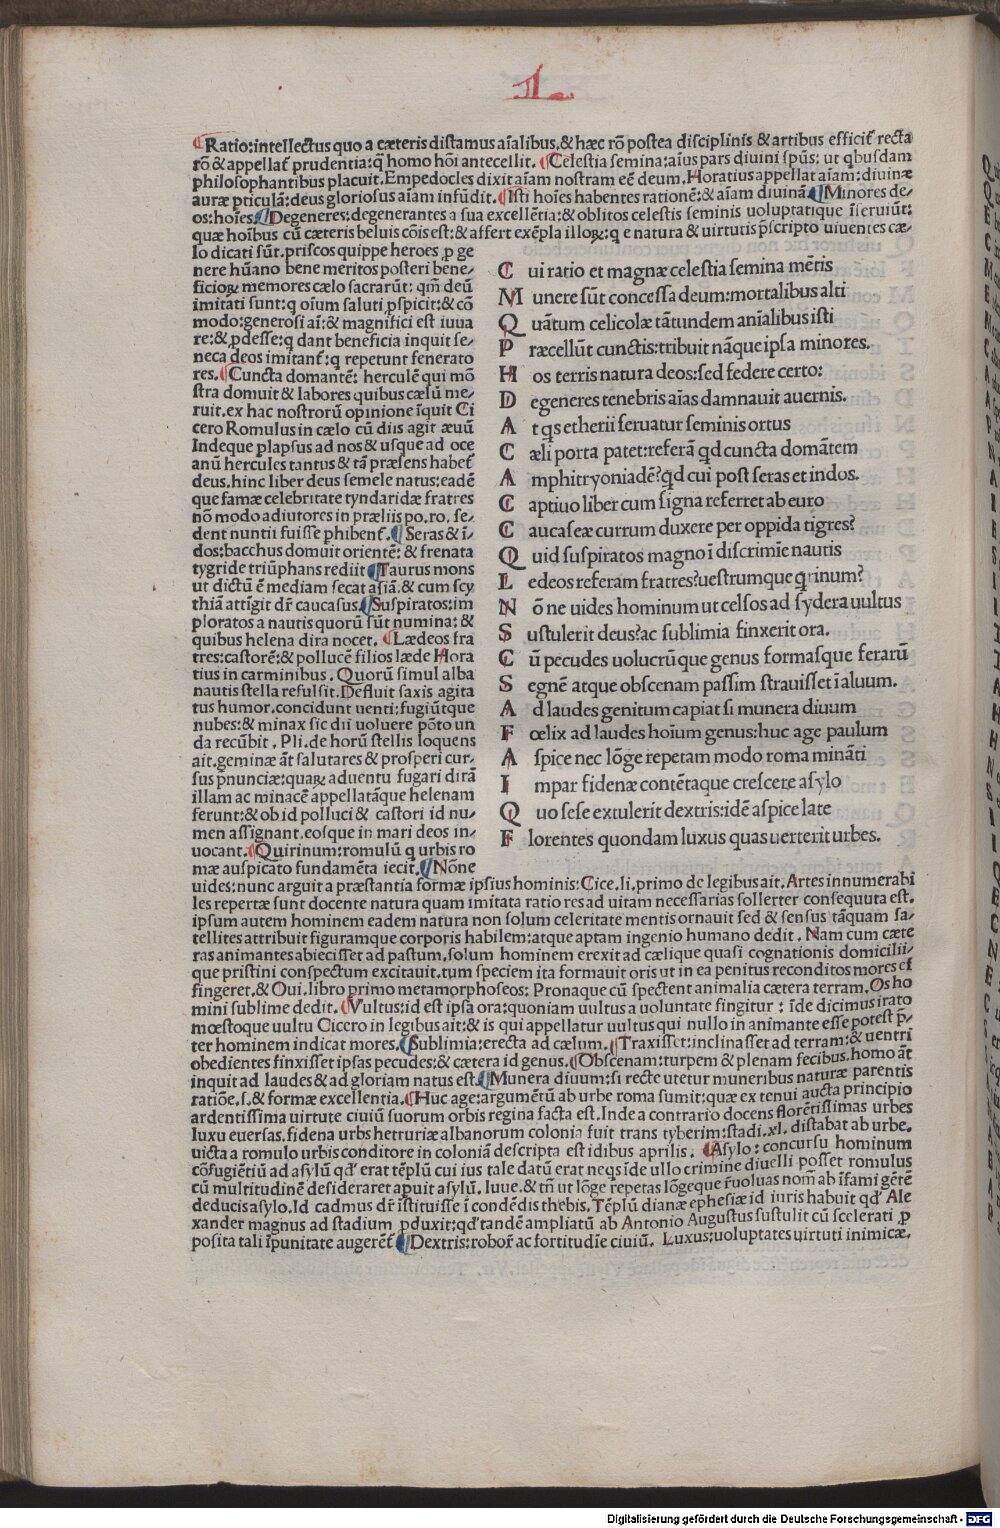 1
¶Ratio:intellectus quo a cæteris distamus aĩalibus,& hæc rõ postea disciplinis & artibus efficit̃ recta
rõ & appellat̃ prudentia:q̃ homo hõi antecellit. ¶Celestia semina:aĩus pars diuini spũs: ut qbusdam
philosophantibus placuit. Empedocles dixit aĩam nostram eẽ deum. Horatius appellat aĩam: diuinæ
auræ pticulã:deus gloriosus aĩam infũdit. ¶Isti hoĩes habentes rationẽ:& aĩam diuinã ¶Minores de⸗
os:hoĩes ¶Degeneres:degenerantes a sua excellẽtia:& oblitos celestis seminis uoluptatique ĩseruiũt:
quæ hoĩbus cũ cæteris beluis cõis est:& affert exẽpla illoꝝ:q e natura & uirtutis p̃scripto uiuentes cæ⸗
lo dicati sũt.priscos quippe heroes ꝓ ge
nere hũano bene meritos posteri bene⸗
ficioꝝ memores cælo sacrarũt: qm̃ deũ
imitati sunt:q oĩum saluti ꝓspicit:& cõ
modo:generosi aĩ:& magnifici est iuua
re:& ꝓdesse:q dant beneficia inquit se⸗
neca deos imitant̃:q repetunt fenerato
res. ¶Cuncta domantẽ: herculẽ qui mõ
stra domuit & labores quibus cælũ me⸗
ruit.ex hac nostrorũ opinione ĩquit Ci
cero Romulus in cælo cũ diis agit æuũ
Indeque plapsus ad nos & usque ad oce
anũ hercules tantus & tã præsens habet̃
deus.hinc liber deus semele natus:eadẽ
que famæ celebritate tyndaridæ fratres
nõ modo adiutores in præliis po.ro. se⸗
dent nuntii fuisse phibent̃. ¶Seras & ĩ⸗
dos:bacchus domuit orientẽ: & frenata
tygride triũphans rediit ¶Taurus mons
ut dictũ ẽ mediam secat asiã:& cum scy
thiã attĩgit dr̃ caucasus. ¶Suspiratos:im
ploratos a nautis quorũ sũt numina: &
quibus helena dira nocet. ¶Lædeos fra
tres:castorẽ:& pollucẽ filios læde Hora
tius in carminibus. Quorũ simul alba
nautis stella refulsit. Defluit saxis agita
tus humor.concidunt uenti:fugiũtque
nubes:& minax sic dii uoluere põto un
da recũbit. Pli.de horũ stellis loquens
ait.geminæ aũt salutares & prosperi cur⸗
sus p̃nunciæ:quaꝝ aduentu fugari dirã
illam ac minacẽ appellatãque helenam
ferunt:& ob id polluci & castori id nu⸗
men assignant.eosque in mari deos in⸗
uocant. ¶Quirinum:romulũ q urbis ro
mæ auspicato fundamẽta iecit. ¶Nõne
C ui ratio et magnæ celestia semina mẽtis
M unere sũt concessa deum:mortalibus alti
Q uãtum celicolæ tãtundem anĩalibus isti
P ræcellũt cunctis:tribuit nãque ipsa minores.
H os terris natura deos:sed federe certo:
D egeneres tenebris aĩas damnauit auernis.
A t qs etherii seruatur seminis ortus
C æli porta patet:referã qd cuncta domãtem
A mphitryoniadẽ?qd cui post seras et indos.
C aptiuo liber cum signa referret ab euro
C aucaseæ currum duxere per oppida tigres?
Q uid suspiratos magno ĩ discrimĩe nautis
L edeos referam fratres?uestrumque qrinum?
N õne uides hominum ut celsos ad sydera uultus
S ustulerit deus?ac sublimia finxerit ora.
C ũ pecudes uolucrũque genus formasque ferarũ
S egnẽ atque obscenam passim strauisset ĩ aluum.
A d laudes genitum capiat si munera diuum
F œlix ad laudes hoĩum genus:huc age paulum
A spice nec lõge repetam modo roma minãti
I mpar fidenæ contẽtaque crescere asylo
Q uo sese extulerit dextris:idẽ aspice late
F lorentes quondam luxus quas uerterit urbes.
uides:nunc arguit a præstantia formæ ipsius hominis: Cice.li.primo de legibus ait. Artes innumerabi
les repertæ sunt docente natura quam imitata ratio res ad uitam necessarias sollerter consequuta est.
ipsum autem hominem eadem natura non solum celeritate mentis ornauit sed & sensus tãquam sa⸗
tellites attribuit figuramque corporis habilem:atque aptam ingenio humano dedit. Nam cum cæte
ras animantes abiecisset ad pastum.solum hominem erexit ad cælique quasi cognationis domicilii⸗
que pristini conspectum excitauit.tum speciem ita formauit oris ut in ea penitus reconditos mores ef
fingeret.& Oui.libro primo metamorphoseos: Pronaque cũ spectent animalia cætera terram.Os ho
mini sublime dedit. ¶Vultus:id est ipsa ora:quoniam uultus a uoluntate fingitur: ĩde dicimus irato
mœstoque uultu Cicero in legibus ait:& is qui appellatur uultus qui nullo in animante esse potest p̃⸗
ter hominem indicat mores. ¶Sublimia:erecta ad cælum. ¶Traxisset:inclinasset ad terram:& uentri
obedientes finxisset ipsas pecudes:& cætera id genus. ¶Obscenam:turpem & plenam fecibus.homo aũt
inquit ad laudes & ad gloriam natus est. ¶Munera diuum:si recte utetur muneribus naturæ parentis
ratiõe.s.& formæ excellentia. ¶Huc age:argumẽtũ ab urbe roma sumit:quæ ex tenui aucta principio
ardentissima uirtute ciuiũ suorum orbis regina facta est.Inde a contrario docens florẽtissimas urbes
luxu euersas.fidena urbs hetruriæ albanorum colonia fuit trans tyberim:stadi.xl. distabat ab urbe.
uicta a romulo urbis conditore in coloniã descripta est idibus aprilis. ¶Asylo: concursu hominum
cõfugiẽtiũ ad asylũ qd' erat tẽplũ cui ius tale datũ erat neqs ĩde ullo crimine diuelli posset romulus
cũ multitudinẽ desideraret apuit asylũ. Iuue.& tñ ut lõge r̃petas lõgeque r̃uoluas nom̃ ab ĩfami gẽtẽ
deducis asylo.Id cadmus dr̃ ĩstituisse ĩ condẽdis thebis. Tẽplũ dianæ ephesiæ id iuris habuit qd' Ale
xander magnus ad stadium ꝓduxit:qd' tandẽ ampliatũ ab Antonio Augustus sustulit cũ scelerati ꝓ
posita tali ĩpunitate augerẽt̃ ¶Dextris:robor̃ ac fortitudĩe ciuiũ. Luxus:uoluptates uirtuti inimicæ.
Digitalisierung gefördert durch die Deutsche Forschungsgemeinschaft - DFG